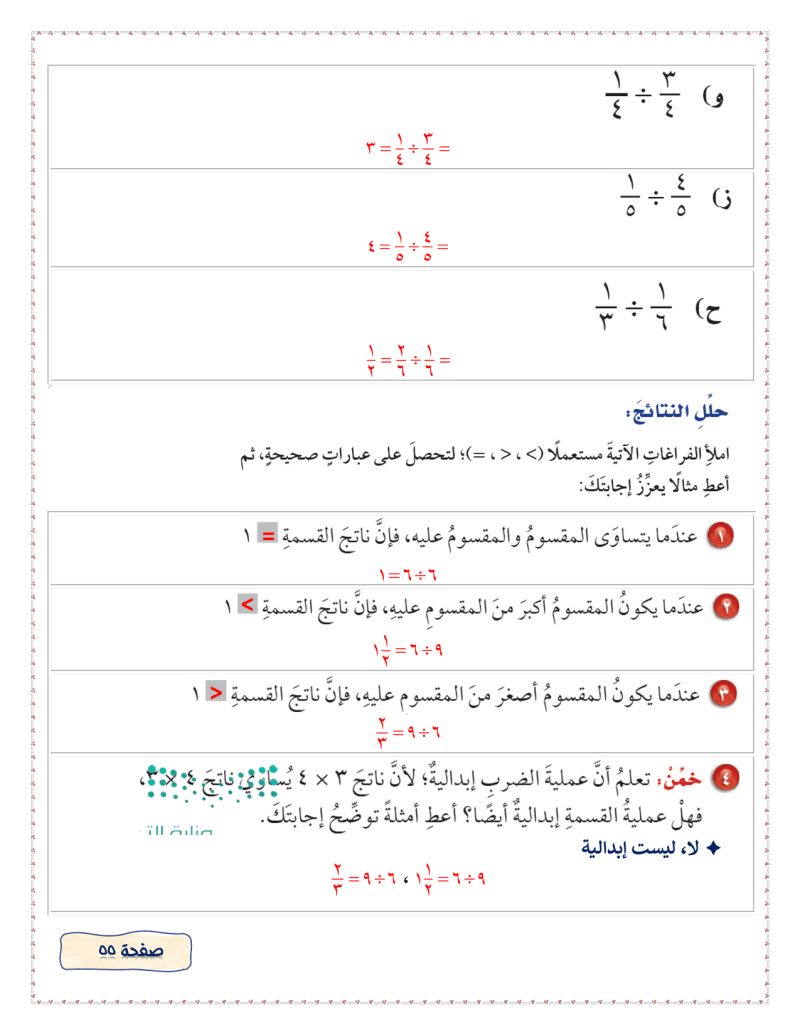 و) ٣/٤ ÷ ١/٤
= ٣/٤ ÷ ١/٤ = ٣
ز) ٤/٥ ÷ ١/٥
= ٤/٥ ÷ ١/٥ = ٤
ح) ١/٦ ÷ ١/٣
= ١/٦ ÷ ٢/٦ = ١/٢
حلِّلِ النتائجَ:
املأِ الفراغاتِ الآتيةَ مستعملًا (> ، < ، =)؛ لتحصلَ على عباراتٍ صحيحةٍ، ثم
أعطِ مثالًا يعزِّزُ إجابتَكَ:
١ عندَما يتساوَى المقسومُ والمقسومُ عليه، فإنَّ ناتجَ القسمةِ = ١
٦ ÷ ٦ = ١
٢ عندَما يكونُ المقسومُ أكبرَ منَ المقسومِ عليهِ، فإنَّ ناتجَ القسمةِ > ١
٩ ÷ ٦ = ١ ١/٢
٣ عندَما يكونُ المقسومُ أصغرَ منَ المقسومِ عليهِ، فإنَّ ناتجَ القسمةِ < ١
٦ ÷ ٩ = ٢/٣
٤ خمِّنْ: تعلمُ أنَّ عمليةَ الضربِ إبداليةٌ؛ لأنَّ ناتجَ ٣ × ٤ يُساوي ناتجَ ٤ × ٣،
فهلْ عمليةُ القسمةِ إبداليةٌ أيضًا؟ أعطِ أمثلةً توضِّحُ إجابتَكَ.
وزارة
✦ لا، ليست إبدالية
٩ ÷ ٦ = ١ ١/٢ ، ٦ ÷ ٩ = ٢/٣
صفحة ٥٥